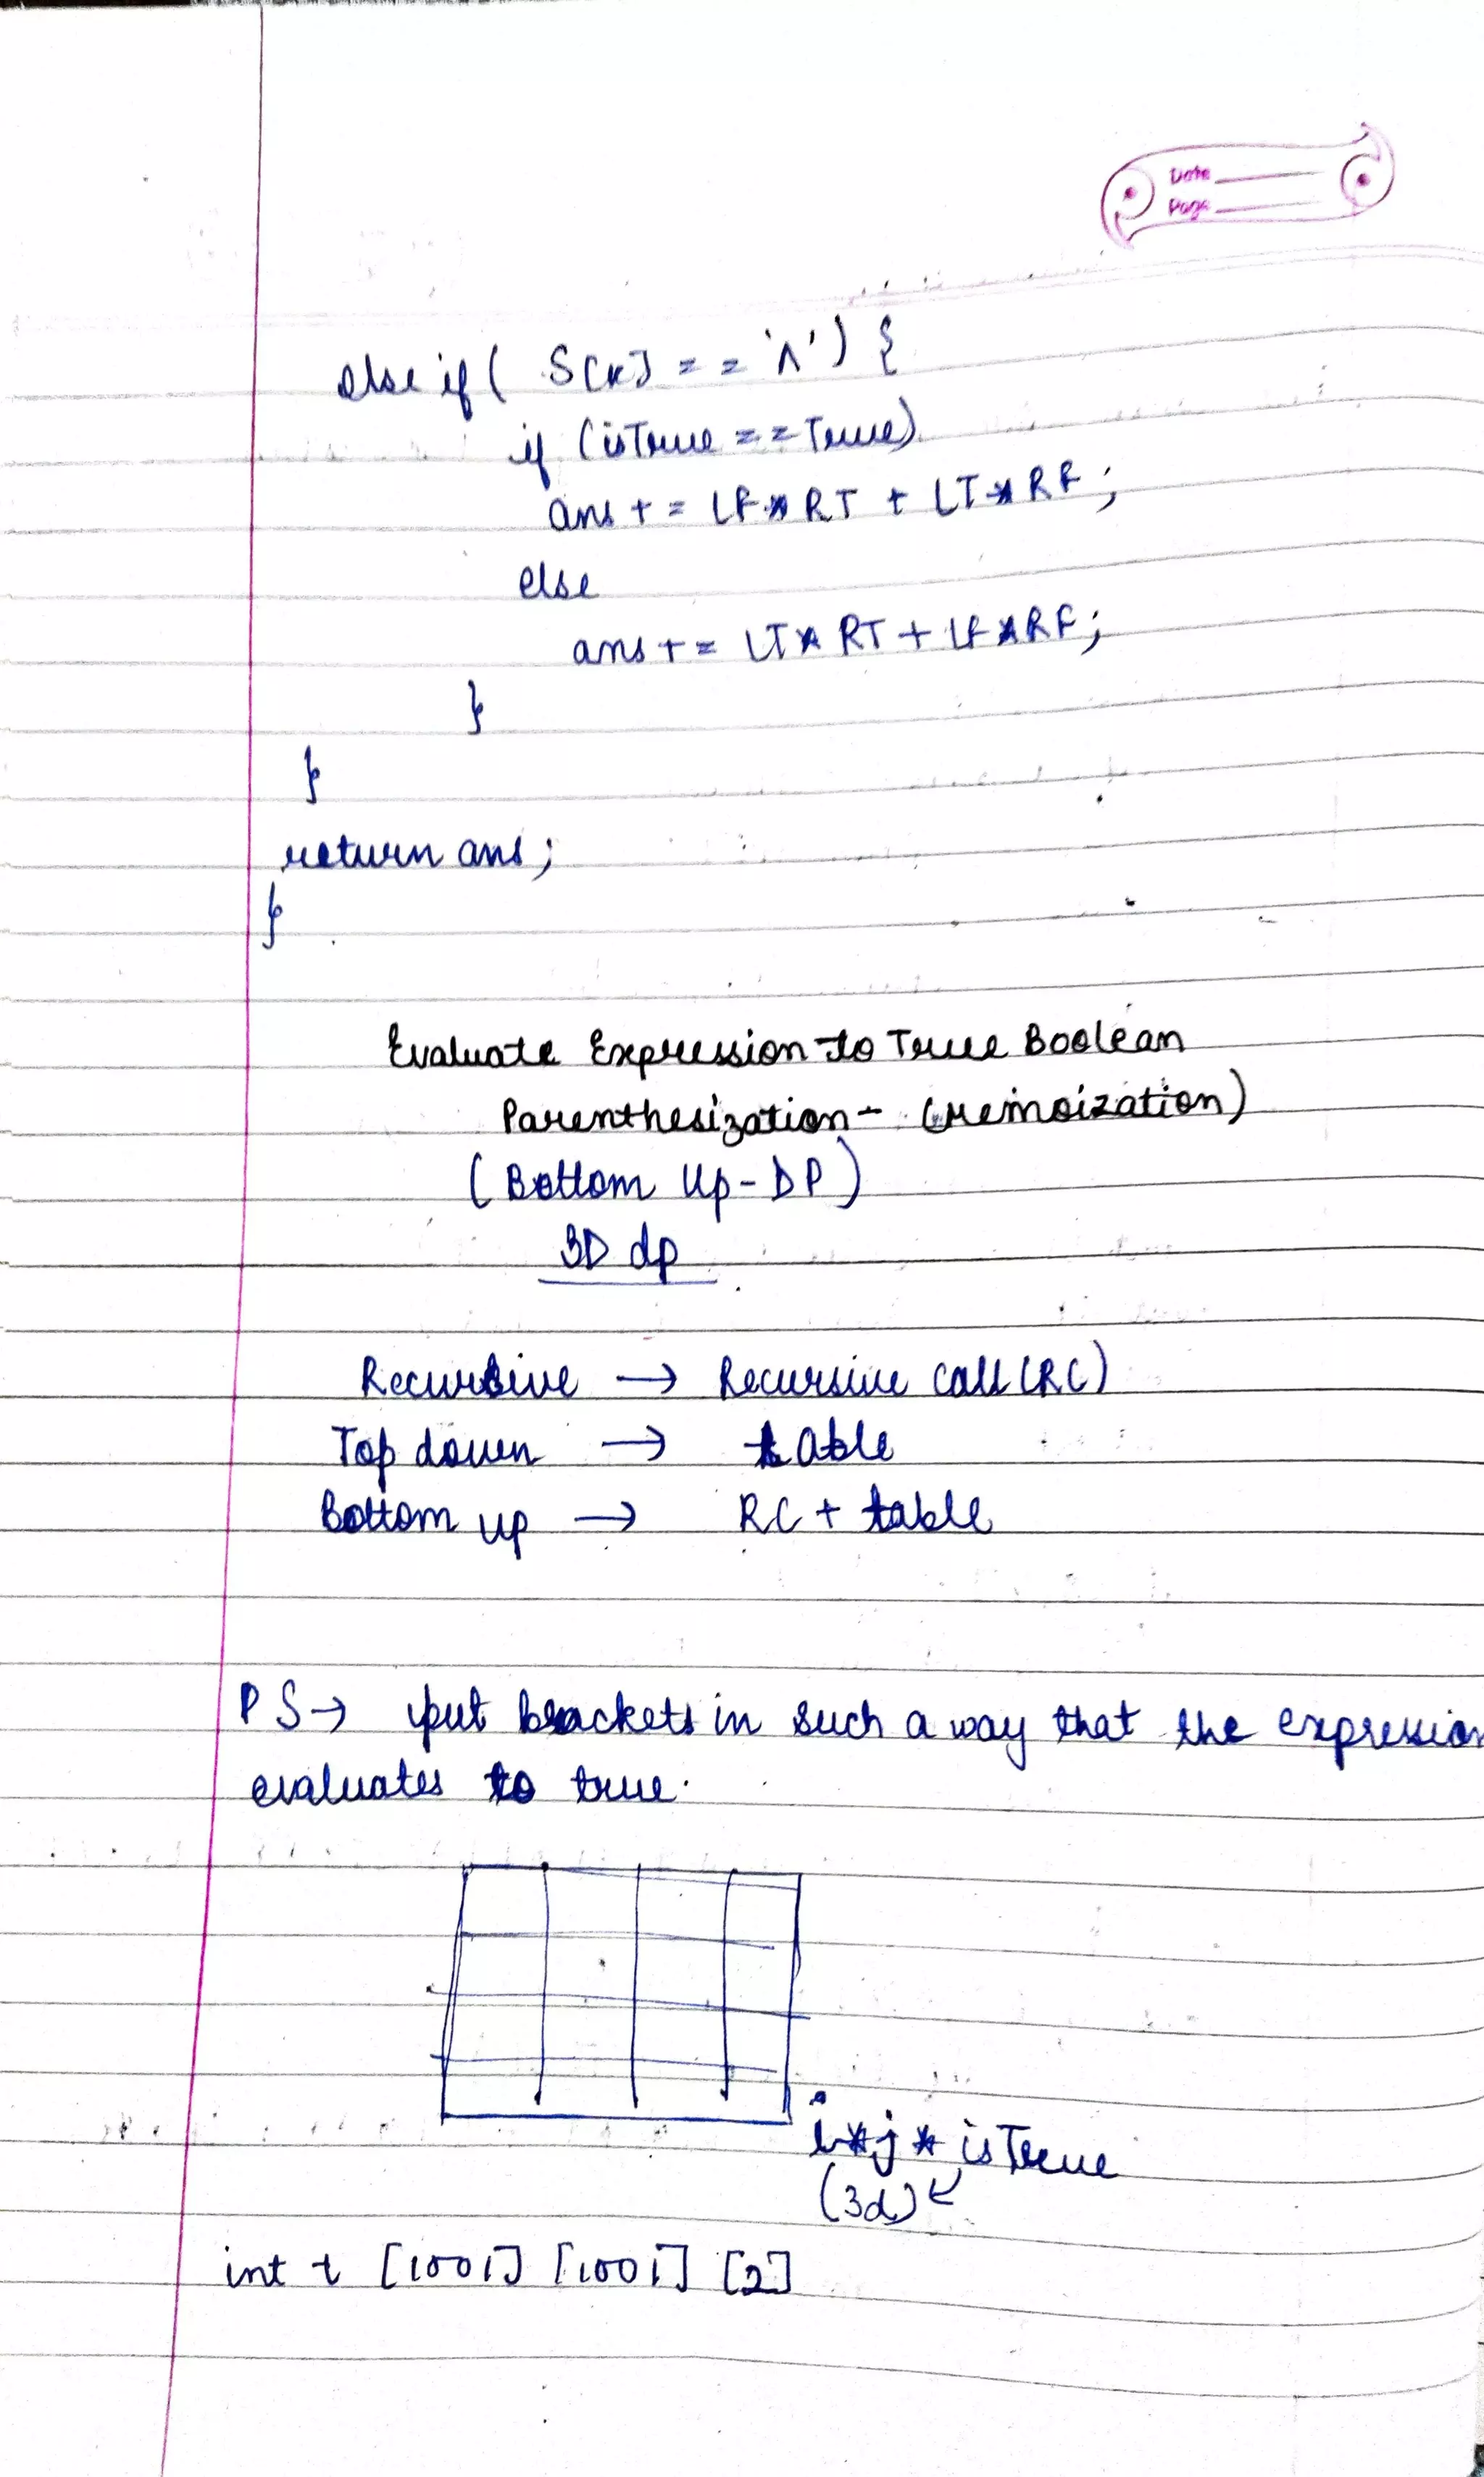 Date
Page
else if ( S[K] == '^' ) {
if (isTrue == True)
ans += LF * RT + LT * RF ;
else
ans += LT * RT + LF * RF ;
}
}
return ans ;
}
Evaluate Expression to True Boolean
Parenthesization - (Memoization)
( Bottom Up - DP )
3D dp
Recursive → Recursive call (RC)
Top down → table
Bottom up → RC + table
PS → put brackets in such a way that the expression
evaluates to true.
i * j * isTrue
(3d) ↙
int t [1001] [1001] [2]